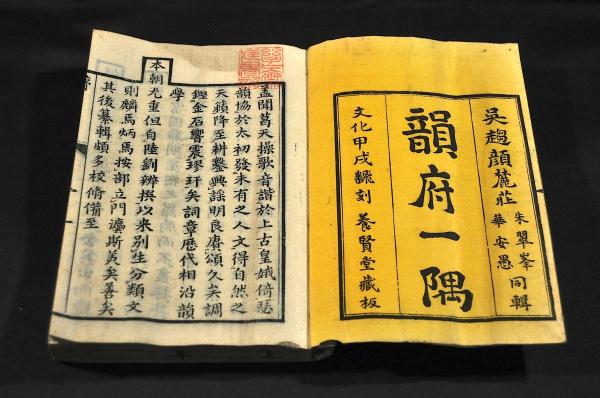 吳趨顔麓莊
朱翠峯
華安愚
同輯
韻府一隅
文化甲戌飜刻 養賢堂藏板
蓋聞葛天操歌音諧於上古皇娥倚瑟
韻協於太初發未有之人文得自然之
天籟降至耕鑿興謡明良賡頌久矣調
鏗金石響震璆玕矣詞章歷代相沿韻
學
本朝尤重但自陸劉辨撰以来別生分類文
則麟焉炳焉按部立門灋斯美矣善矣
其後纂輯頗多校脩備至